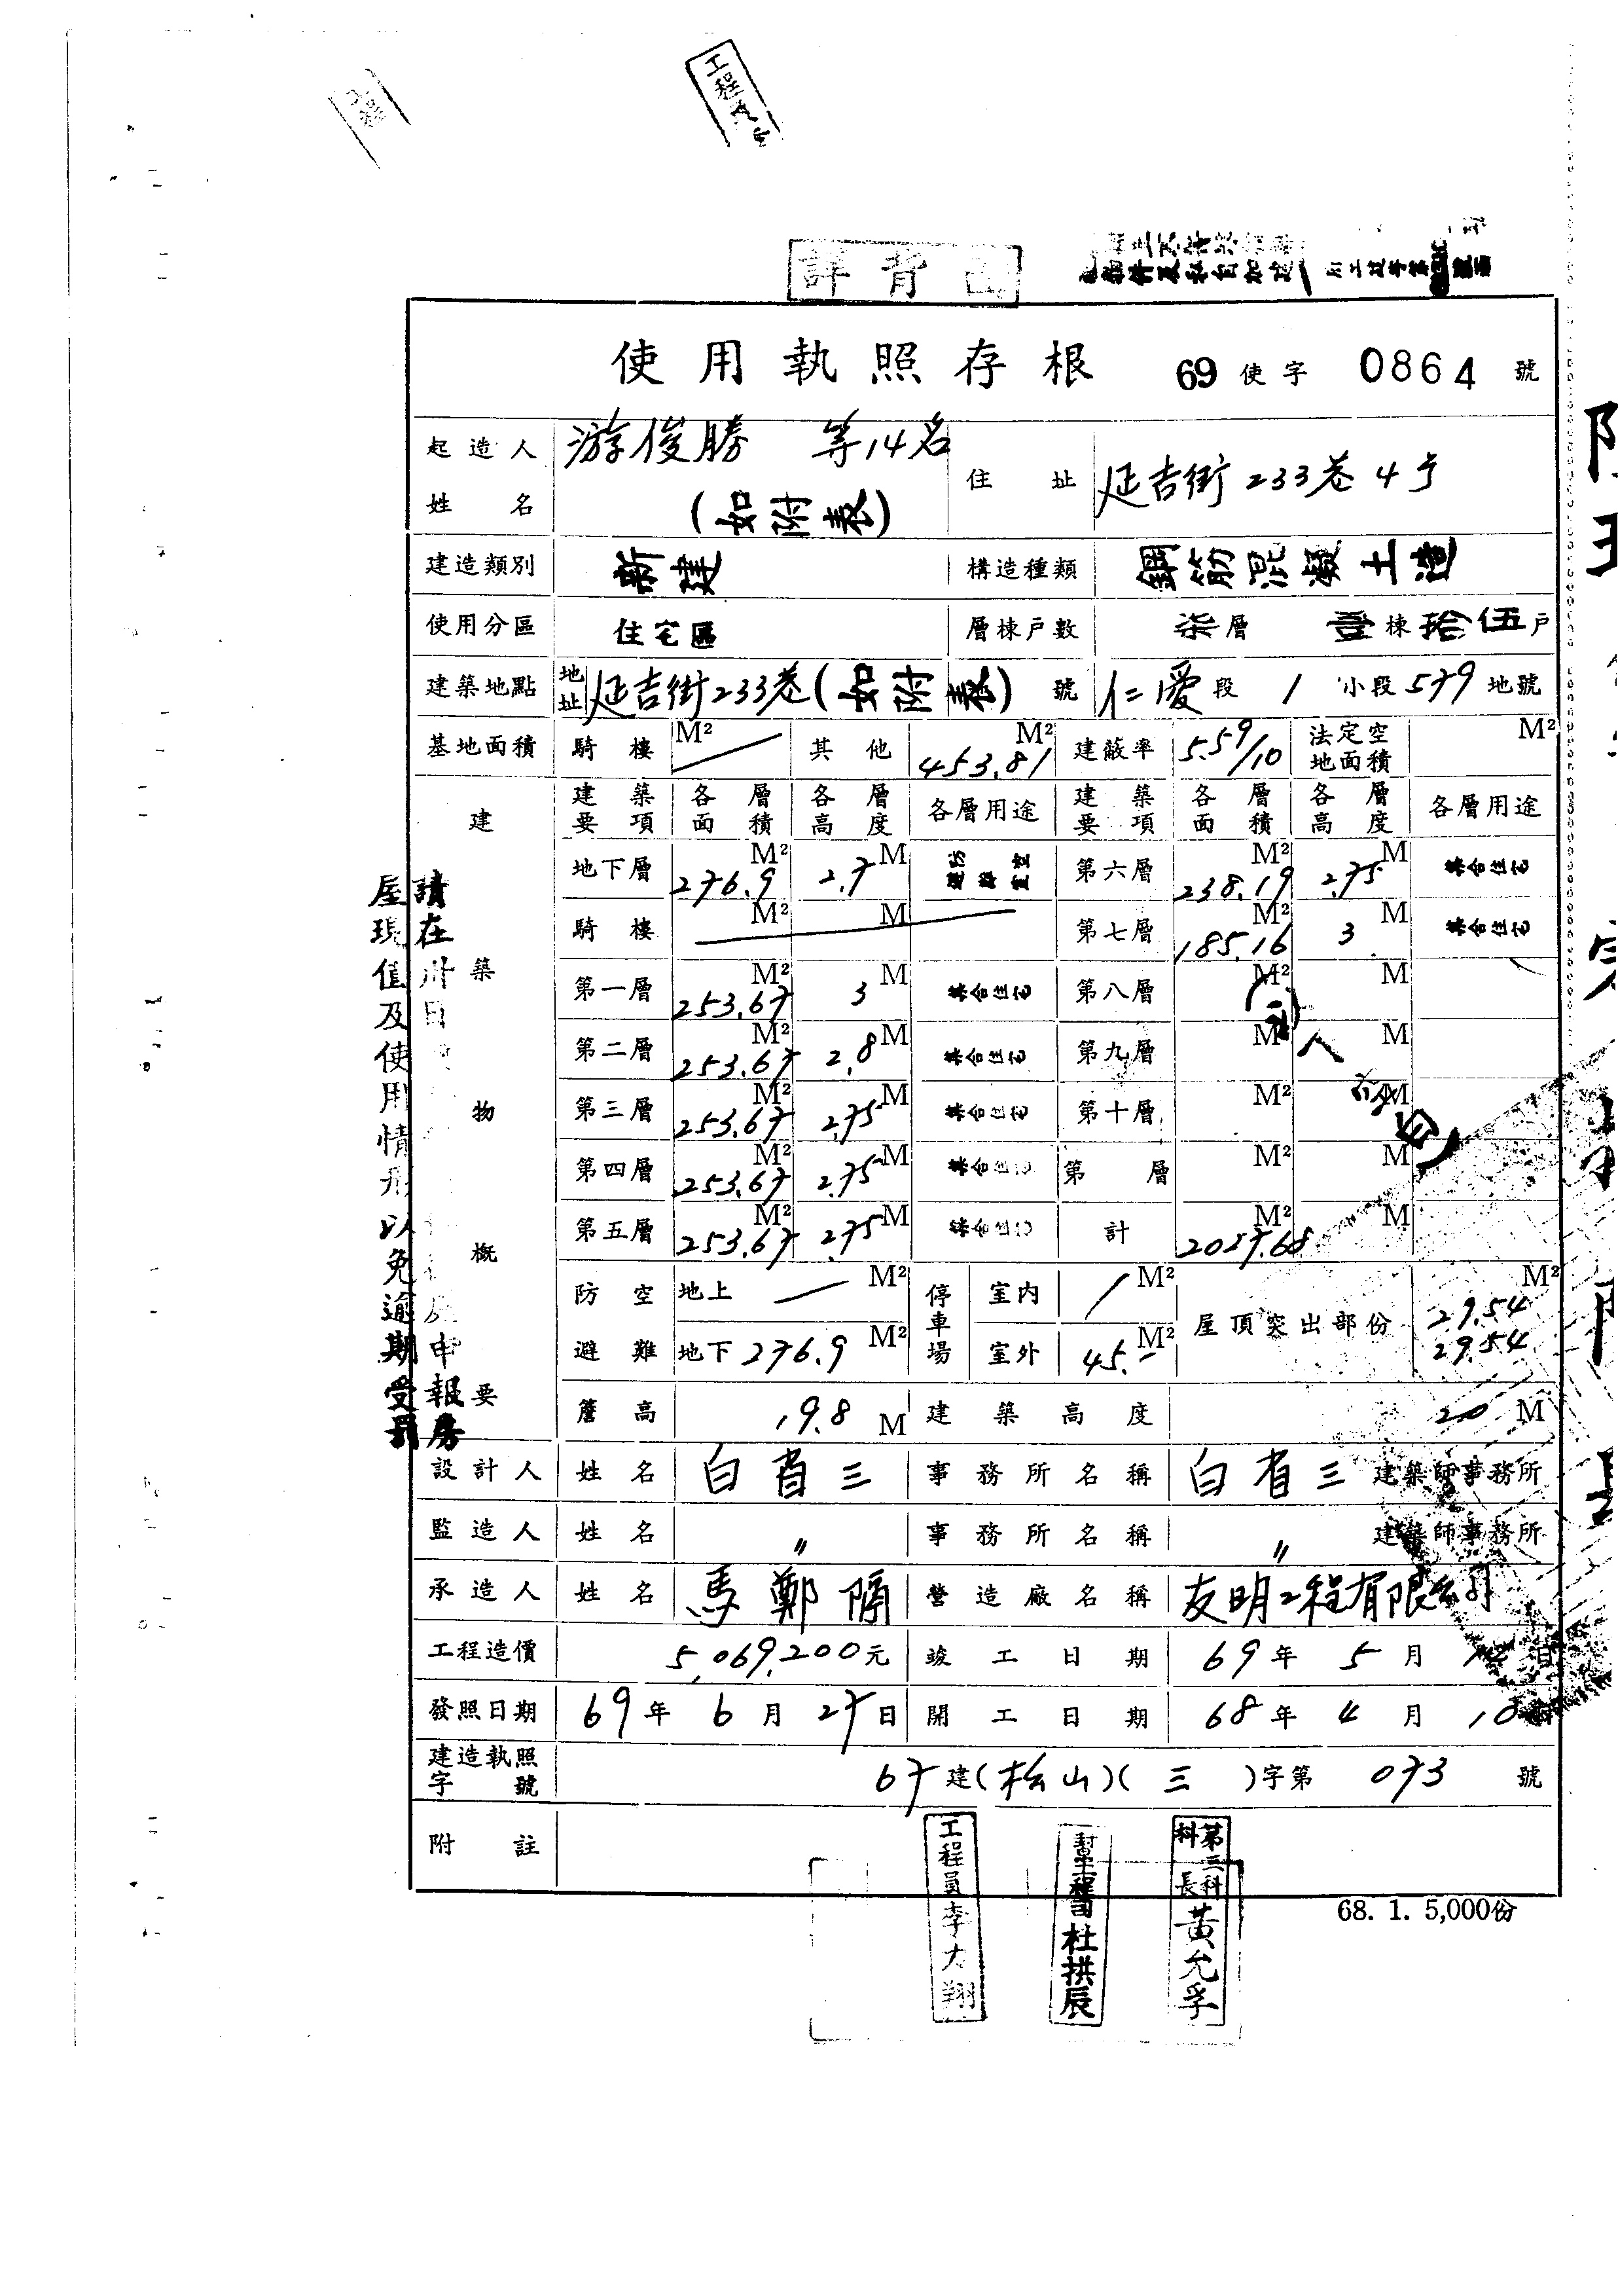 工程員
詳背面
使用執照存根 69 使字 0864 號
起造人姓名 游俊勝 等14名 (如附表) 住址 延吉街233巷4号
建造類別 新建 構造種類 鋼筋混凝土造
使用分區 住宅區 層棟戶數 柒層 壹棟拾伍戶
建築地點 地址 延吉街233巷(如附表) 號 仁愛段 1 小段 579 地號
基地面積 騎樓 M² 其他 453.81 M² 建蔽率 5.59/10 法定空地面積 M²
建築物概要
建築要項 各層面積 各層高度 各層用途 建築要項 各層面積 各層高度 各層用途
地下層 276.9 M² 2.7 M 第六層 238.19 M² 2.75 M 集合住宅
騎樓 M² M 第七層 185.16 M² 3 M 集合住宅
第一層 253.67 M² 3 M 集合住宅 第八層 M² M
第二層 253.67 M² 2.8 M 集合住宅 第九層 M² M
第三層 253.67 M² 2.75 M 集合住宅 第十層 M² M
第四層 253.67 M² 2.75 M 集合住宅 第 層 M² M
第五層 253.67 M² 2.75 M 集合住宅 計 2057.68 M² M
防空避難 地上 — M² 停車場 室內 / M² 屋頂突出部份 29.54 M²
地下 276.9 M² 室外 45.- M² 29.54
簷高 19.8 M 建築高度 20 M
設計人 姓名 白省三 事務所名稱 白省三 建築師事務所
監造人 姓名 〃 事務所名稱 〃 建築師事務所
承造人 姓名 馬鄭隔 營造廠名稱 友明工程有限公司
工程造價 5,069,200元 竣工日期 69年 5月 日
發照日期 69年 6月 27日 開工日期 68年 4月 10
建造執照字號 67建(松山)(三)字第 073 號
附註
請在卅日 申報房
屋現值及使用情形以免逾期受罰
工程員李大翔
杜拱辰
第三科科長黃允孚
68. 1. 5,000份